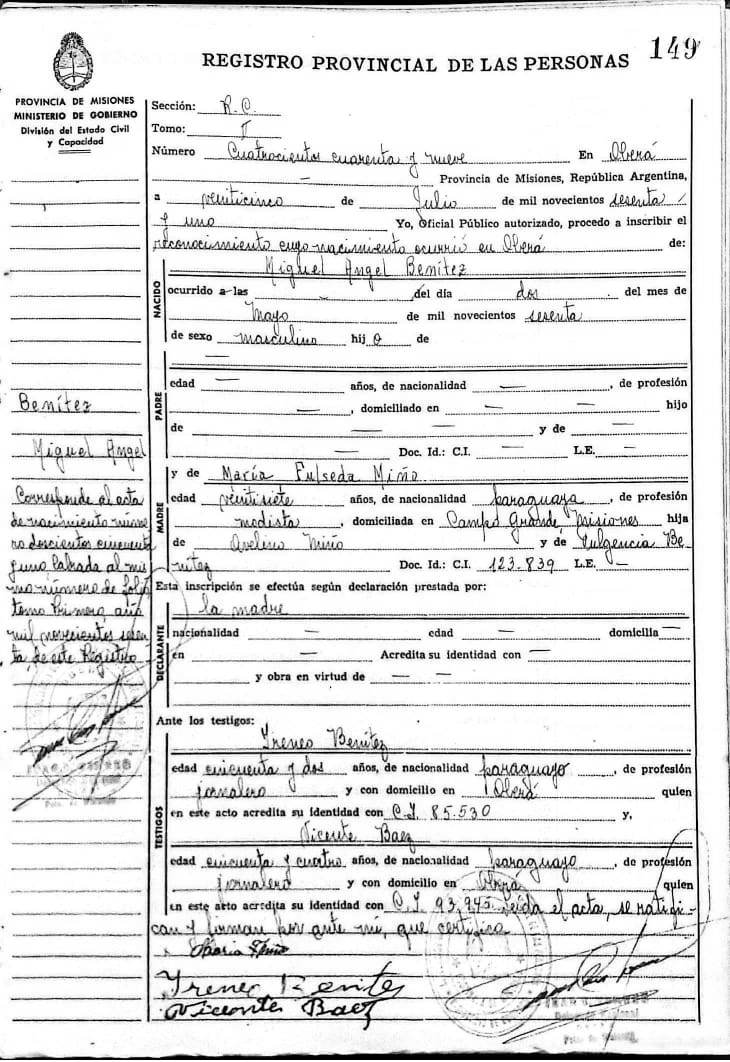 149
REGISTRO PROVINCIAL DE LAS PERSONAS
PROVINCIA DE MISIONES
MINISTERIO DE GOBIERNO
División del Estado Civil
y Capacidad
Sección: R.C.
Tomo: I
Número Cuatrocientos cuarenta y nueve En Oberá
— Provincia de Misiones, República Argentina,
a veinticinco de Julio de mil novecientos sesenta
y uno Yo, Oficial Público autorizado, procedo a inscribir el
reconocimiento cuyo nacimiento ocurrió en Oberá de:
NACIDO
Miguel Angel Benítez
ocurrido a las — del día dos del mes de
Mayo de mil novecientos sesenta
de sexo masculino hij o de
PADRE
—
edad — años, de nacionalidad —, de profesión
—, domiciliado en — — hijo
de — — y de —
— Doc. Id.: C.I. — L.E. —
MADRE
y de María Fulseda Miño
edad veintisiete años, de nacionalidad paraguaya, de profesión
modista, domiciliada en Campo Grande, Misiones hija
de Avelino Miño y de Fulgencia Be
nítez Doc. Id.: C.I. 123.839 L.E. —
Esta inscripción se efectúa según declaración prestada por:
DECLARANTE
la madre
nacionalidad — edad — domicilia —
en — Acredita su identidad con —
y obra en virtud de — —
Ante los testigos:
TESTIGOS
Ireneo Benítez
edad cincuenta y dos años, de nacionalidad paraguayo, de profesión
jornalero y con domicilio en Oberá quien
en este acto acredita su identidad con C.I. 85.530 y,
Vicente Baez
edad cincuenta y cuatro años, de nacionalidad paraguayo, de profesión
jornalero y con domicilio en Oberá quien
en este acto acredita su identidad con C.I. 93.945. Leída el acta, se ratifi
can y firman por ante mí, que certifico
Maria Miño
Ireneo Benites
Vicente Baez
Benítez
Miguel Angel
Corresponde al acta
de nacimiento núme
ro doscientos cincuenta
y uno labrada al mis
mo número de folio
tomo primero, año
mil novecientos sesen
ta, de este Registro